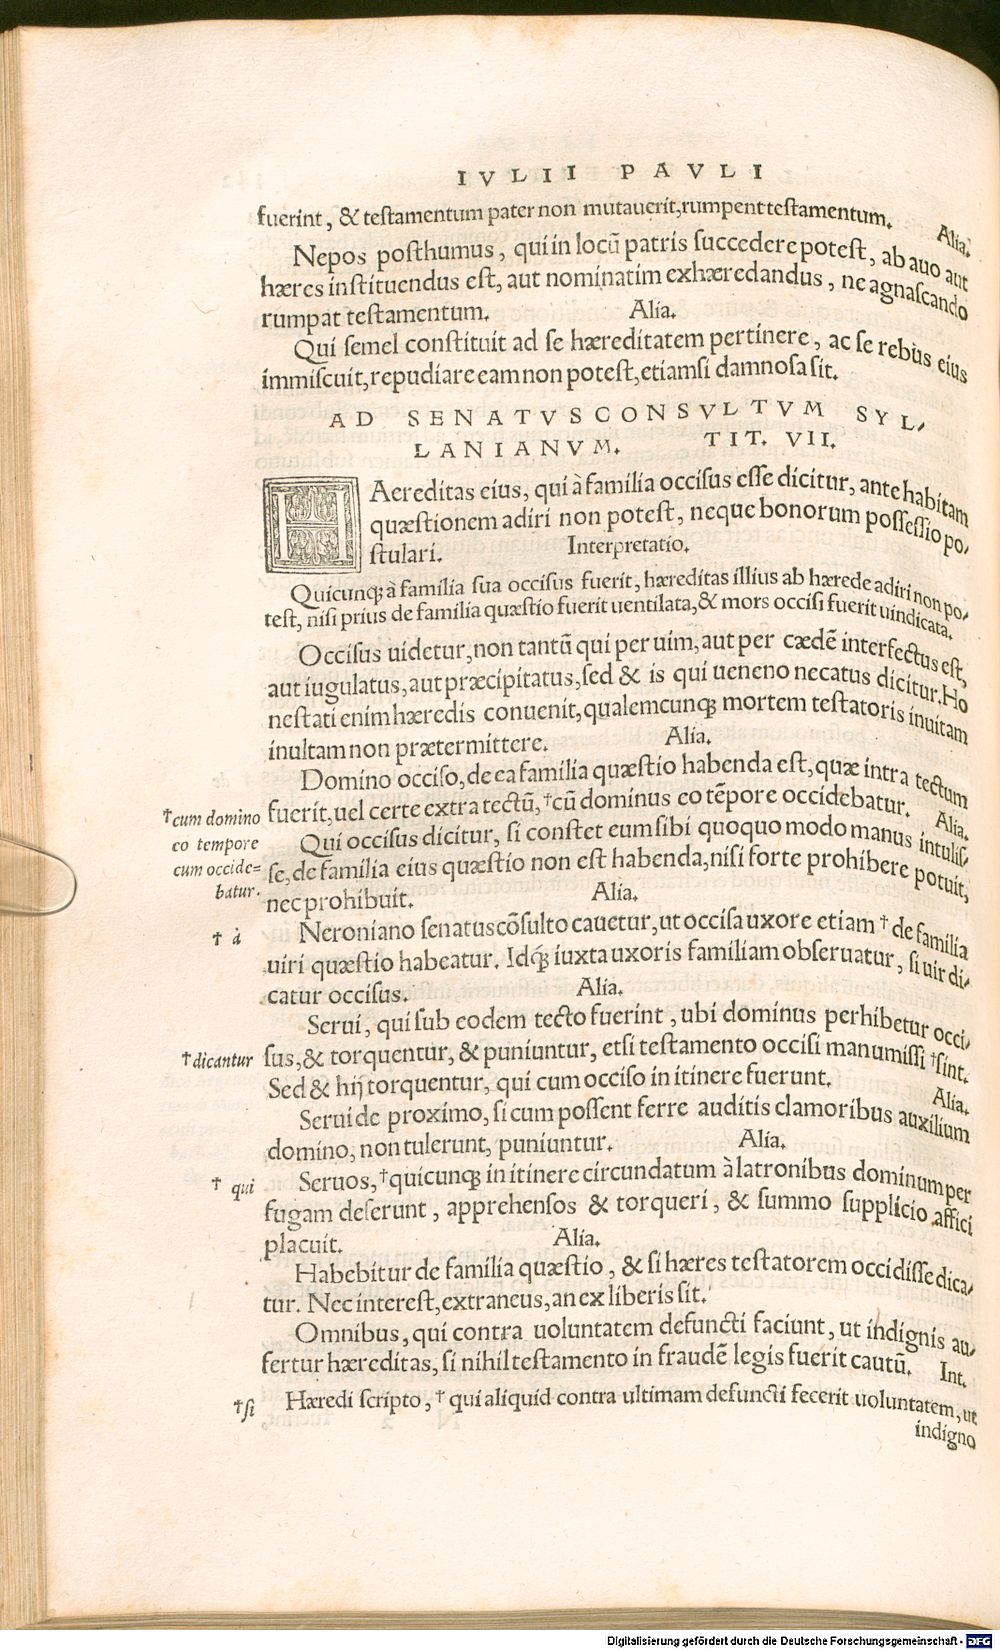 IVLII PAVLI
fuerint, & testamentum pater non mutauerit, rumpent testamentum. Alia.
Nepos posthumus, qui in locū patris succedere potest, ab auo aut
hæres instituendus est, aut nominatim exhæredandus, ne agnascando
rumpat testamentum. Alia.
Qui semel constituit ad se hæreditatem pertinere, ac se rebus eius
immiscuit, repudiare eam non potest, etiamsi damnosa sit.
AD SENATVSCONSVLTVM SYL/
LANIANVM. TIT. VII.
HAereditas eius, qui à familia occisus esse dicitur, ante habitam
quæstionem adiri non potest, neque bonorum possessio po/
stulari. Interpretatio.
Quicunq; à familia sua occisus fuerit, hæreditas illius ab hærede adiri non po/
test, nisi prius de familia quæstio fuerit uentilata, & mors occisi fuerit uindicata.
Occisus uidetur, non tantū qui per uim, aut per cædē interfectus est,
aut iugulatus, aut præcipitatus, sed & is qui ueneno necatus dicitur. Ho
nestati enim hæredis conuenit, qualemcunq; mortem testatoris inuitam
inultam non prætermittere. Alia.
Domino occiso, de ea familia quæstio habenda est, quæ intra tectum
fuerit, uel certe extra tectū, †cū dominus eo tēpore occidebatur. Alia.
†cum domino
eo tempore
cum occide=
batur.
Qui occisus dicitur, si constet eum sibi quoquo modo manus intulis/
se, de familia eius quæstio non est habenda, nisi forte prohibere potuit,
nec prohibuit. Alia.
Neroniano senatuscōsulto cauetur, ut occisa uxore etiam † de familia
† à
uiri quæstio habeatur. Idq́; iuxta uxoris familiam obseruatur, si uir di/
catur occisus. Alia.
Serui, qui sub eodem tecto fuerint, ubi dominus perhibetur occi/
sus, & torquentur, & puniuntur, etsi testamento occisi manumissi †sint.
†dicantur
Sed & hij torquentur, qui cum occiso in itinere fuerunt. Alia.
Serui de proximo, si cum possent ferre auditis clamoribus auxilium
domino, non tulerunt, puniuntur. Alia.
Seruos, †quicunq; in itinere circundatum à latronibus dominum per
† qui
fugam deserunt, apprehensos & torqueri, & summo supplicio affici
placuit. Alia.
Habebitur de familia quæstio, & si hæres testatorem occidisse dica/
tur. Nec interest, extraneus, an ex liberis sit.
Omnibus, qui contra uoluntatem defuncti faciunt, ut indignis au/
fertur hæreditas, si nihil testamento in fraudē legis fuerit cautū. Int.
Hæredi scripto, † qui aliquid contra ultimam defuncti fecerit uoluntatem, ut
†si
indigno
Digitalisierung gefördert durch die Deutsche Forschungsgemeinschaft - DFG